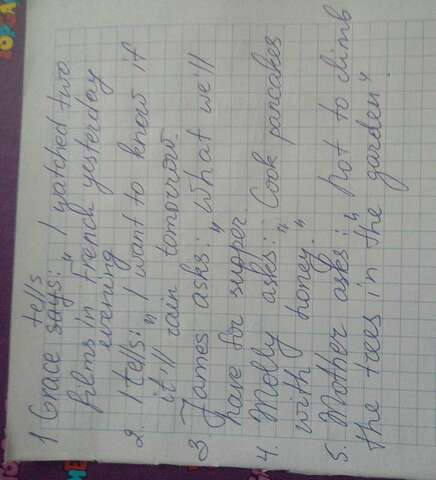 tells
1. Grace says: „ I yatched two
films in French yesterday
evening
2. I tells: „ I want to know if
it'll rain tomorrow.
3. James asks: „ What we'll
have for supper
4. Molly asks: „ Cook pancakes
with honey."
5. Mother asks: „ Not to climb
the trees in the garden."